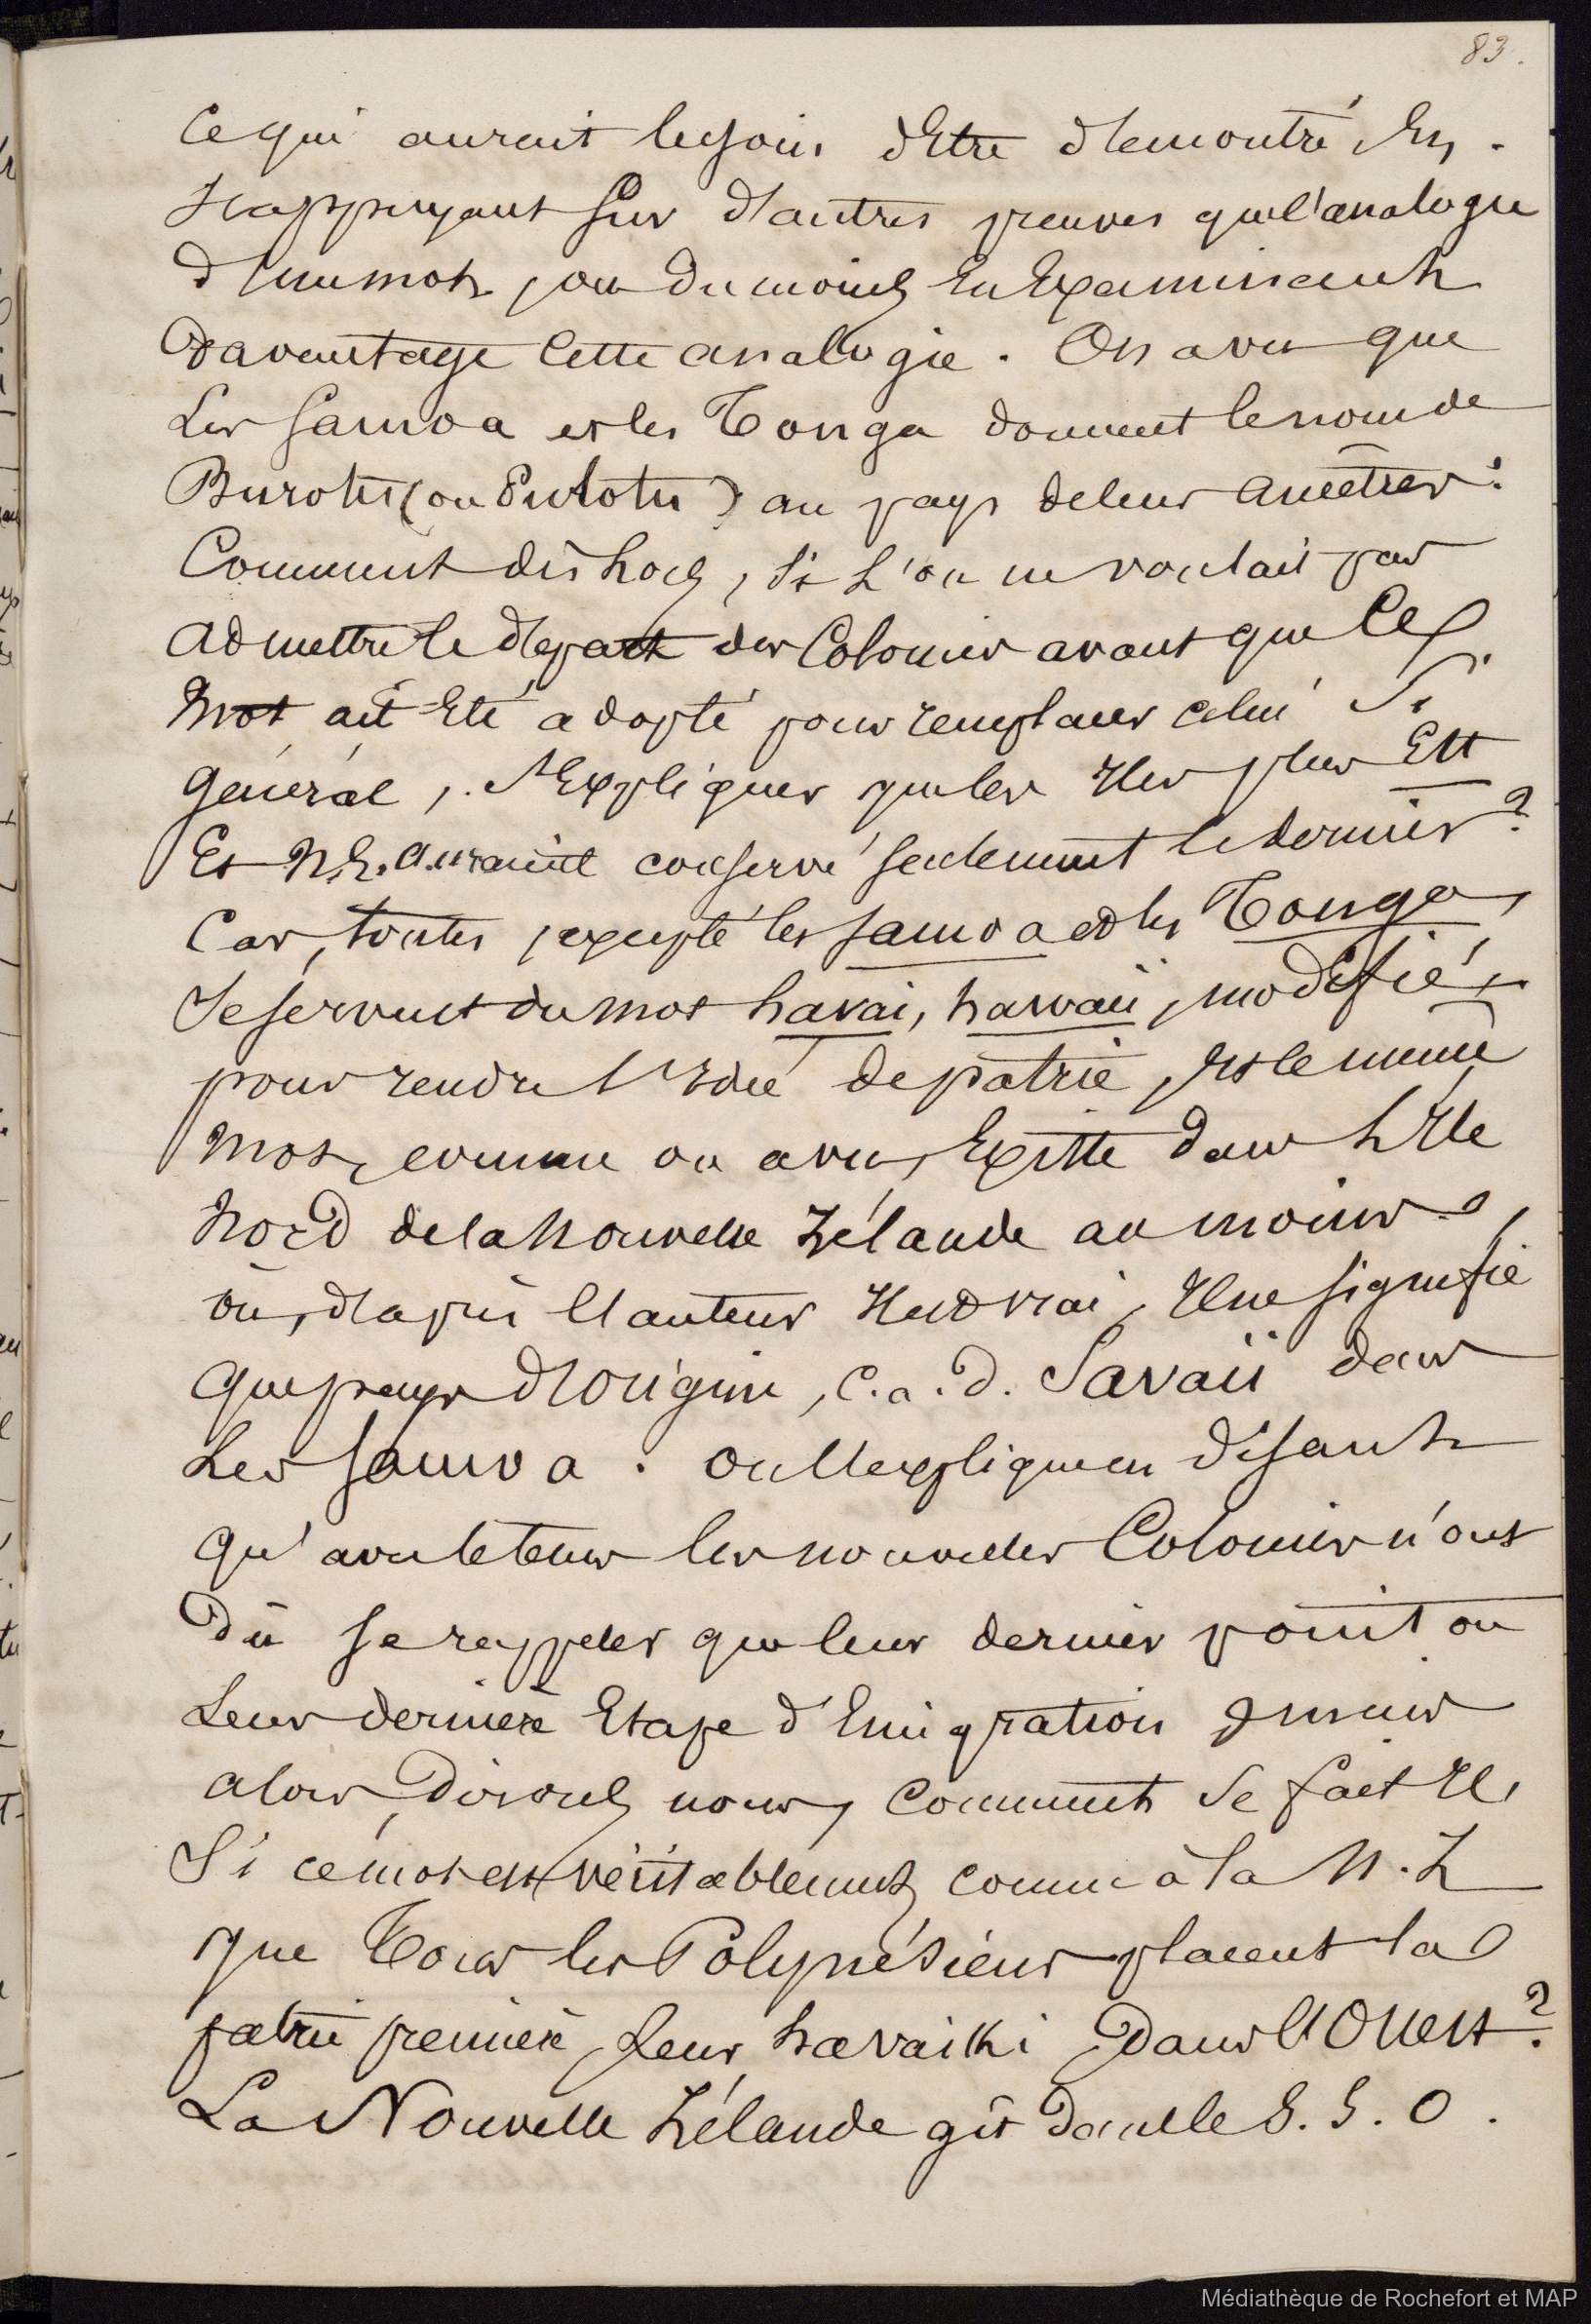 83.
Ce qui aurait besoin d'Etre démontré En
s'appuyant Sur d'autres preuves que l'analogie
d'un mot, ou du moins En Examinant
Davantage Cette analogie. On a vu que
Les Samoa et les Tonga donnent le nom de
Burotu (ou Pulotu) au pays de leurs ancêtres:
Comment dès lors, Si L'on ne voulait pas
admettre le départ des Colonies avant que Ce
mot ait Eté adopté pour remplacer celui Si
Général, S'Expliquer que les Iles plus Est
Et N.E. auraient conservé seulement le dernier?
Car, toutes, excepté les Samoa et les Tonga,
Se servent du mot havai, hawaii, modifié,
pour rendre l'Idée de patrie, Et le même
mot, comme on a vu, Existe dans L'Ile
Nord de la Nouvelle Zélande au moins,
où, d'après l'auteur Il est vrai, Il ne signifie
que pays d'Origine, c.a.d. Savaii dans
Les Samoa. On l'explique en disant
qu'avec le tems les nouvelles Colonies n'ont
Dû se rappeler que leur dernier point ou
Leur dernière Etape d'Emigration; mais
alors, Dirons nous, Comment Se fait Il,
Si ce mot est véritablement comme à la N.Z
que Tous les Polynésiens placent la
patrie première, Leur havaiki, Dans l'Ouest?
La Nouvelle Zélande gît Dans le S.S.O.
Médiathèque de Rochefort et MAP